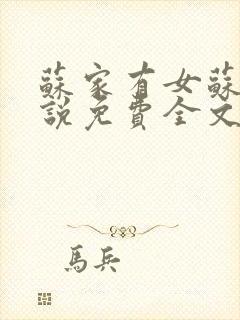 蘇家有女蘇
說免費全文
馬兵